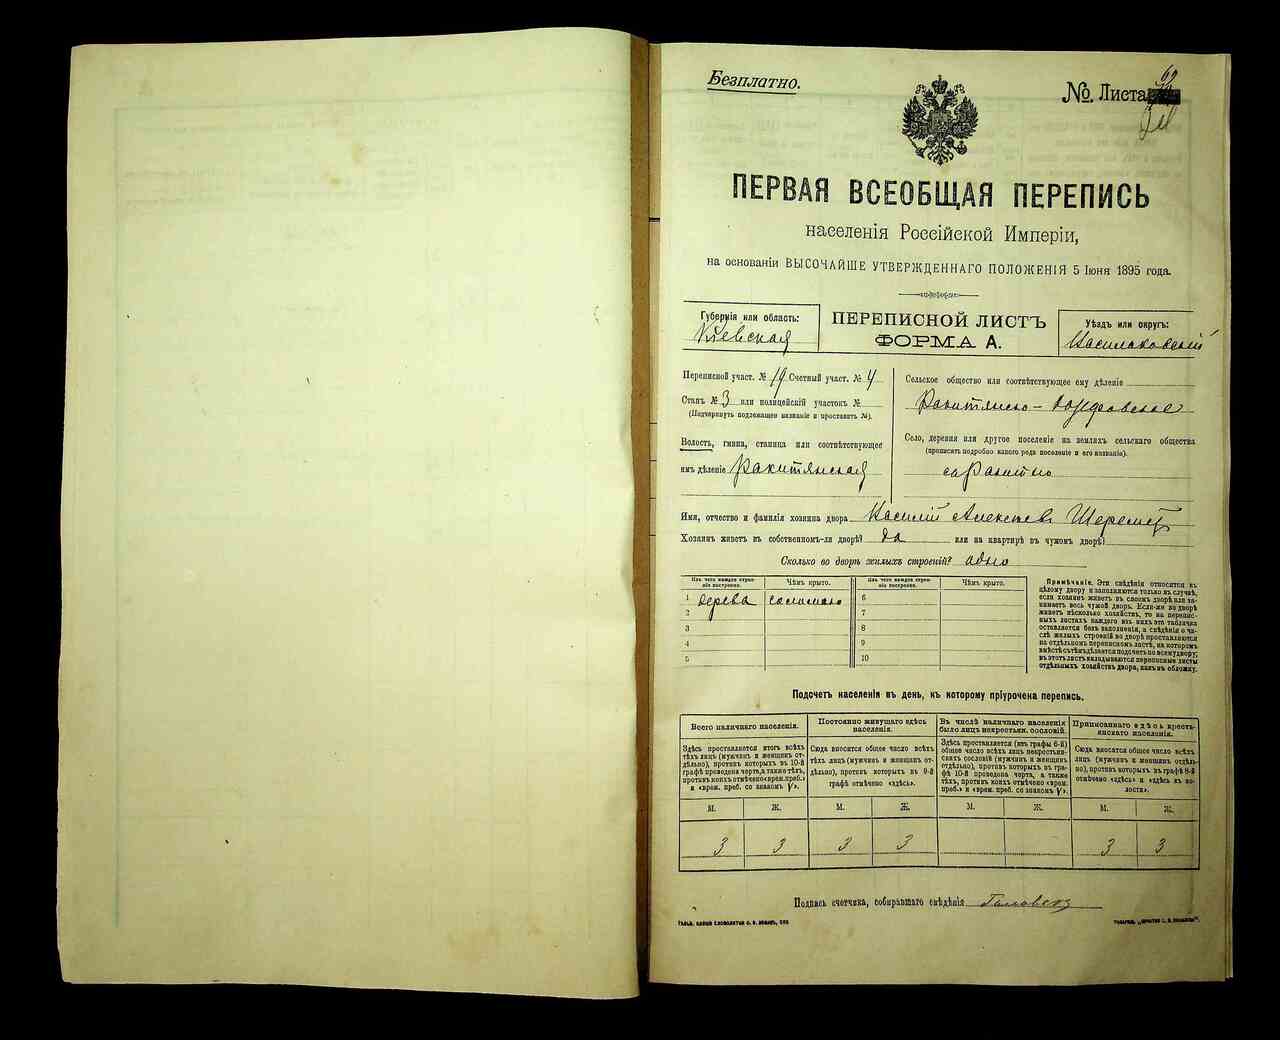 Безплатно.
№. Листа 62
ПЕРВАЯ ВСЕОБЩАЯ ПЕРЕПИСЬ
населенія Россійской Имперіи,
на основаніи ВЫСОЧАЙШЕ УТВЕРЖДЕННАГО ПОЛОЖЕНІЯ 5 Іюня 1895 года.
Губернія или область:
Кіевская
ПЕРЕПИСНОЙ ЛИСТЪ
ФОРМА А.
Уѣздъ или округъ:
Василковскій
Переписной участ. № 19 Счетный участ. № 4
Станъ № 3 или полицейскій участокъ №
(Подчеркнуть подлежащее названіе и проставить №).
Волость, гмина, станица или соотвѣтствующее
имъ дѣленіе Ракитянская
Сельское общество или соотвѣтствующее ему дѣленіе
Ракитянско-
Село, деревня или другое поселеніе на земляхъ сельскаго общества
(прописать подробно какого рода поселеніе и его названіе).
с. Ракитно
Имя, отчество и фамилія хозяина двора Василій Алексѣев Шеремет
Хозяинъ живетъ въ собственномъ-ли дворѣ? да или на квартирѣ въ чужомъ дворѣ?
Сколько во дворѣ жилыхъ строеній? одно
Изъ чего каждое строеніе построено.
Чѣмъ крыто.
Изъ чего каждое строеніе построено.
Чѣмъ крыто.
1 дерева соломою 6
2 7
3 8
4 9
5 10
Примѣчаніе. Эти свѣдѣнія относятся къ
цѣлому двору и заполняются только въ случаѣ,
если хозяинъ живетъ въ своемъ дворѣ или занимаетъ
весь чужой дворъ. Если-же во дворѣ
живетъ нѣсколько хозяйствъ, то на переписныхъ
листахъ каждаго изъ нихъ эта табличка
оставляется безъ заполненія, а свѣдѣнія о числѣ
жилыхъ строеній во дворѣ проставляются
на отдѣльномъ переписномъ листѣ, на которомъ
вмѣстѣ съ тѣмъ дѣлается подсчетъ по всему двору;
въ этотъ листъ вкладываются переписные листы
отдѣльныхъ хозяйствъ двора, какъ въ обложку.
Подсчетъ населенія въ день, къ которому пріурочена перепись.
Всего наличнаго населенія.
Здѣсь проставляется итогъ всѣхъ
тѣхъ лицъ (мужчинъ и женщинъ отдѣльно),
противъ которыхъ въ 10-й
графѣ проведена черта, а также тѣхъ,
противъ коихъ отмѣчено «врем. преб.»
и «врем. преб. со знакомъ V».
Постоянно живущаго здѣсь
населенія.
Сюда вносится общее число всѣхъ
тѣхъ лицъ (мужчинъ и женщинъ отдѣльно),
противъ которыхъ въ 9-й
графѣ отмѣчено «здѣсь».
Въ числѣ наличнаго населенія
было лицъ некрестьян. сословій.
Здѣсь проставляется (изъ графы 6-й)
общее число всѣхъ лицъ некрестьянскихъ
сословій (мужчинъ и женщинъ
отдѣльно), противъ которыхъ въ графѣ
10-й проведена черта, а также
тѣхъ, противъ коихъ отмѣчено «врем.
преб.» и «врем. преб. со знакомъ V».
Приписаннаго здѣсь крестьянскаго
населенія.
Сюда вносится общее число всѣхъ
лицъ (мужчинъ и женщинъ отдѣльно),
противъ которыхъ въ графѣ 8-й
отмѣчено «здѣсь» и «здѣсь въ волости».
М. Ж. М. Ж. М. Ж. М. Ж.
3 3 3 3 3 3
Подпись счетчика, собиравшаго свѣдѣнія